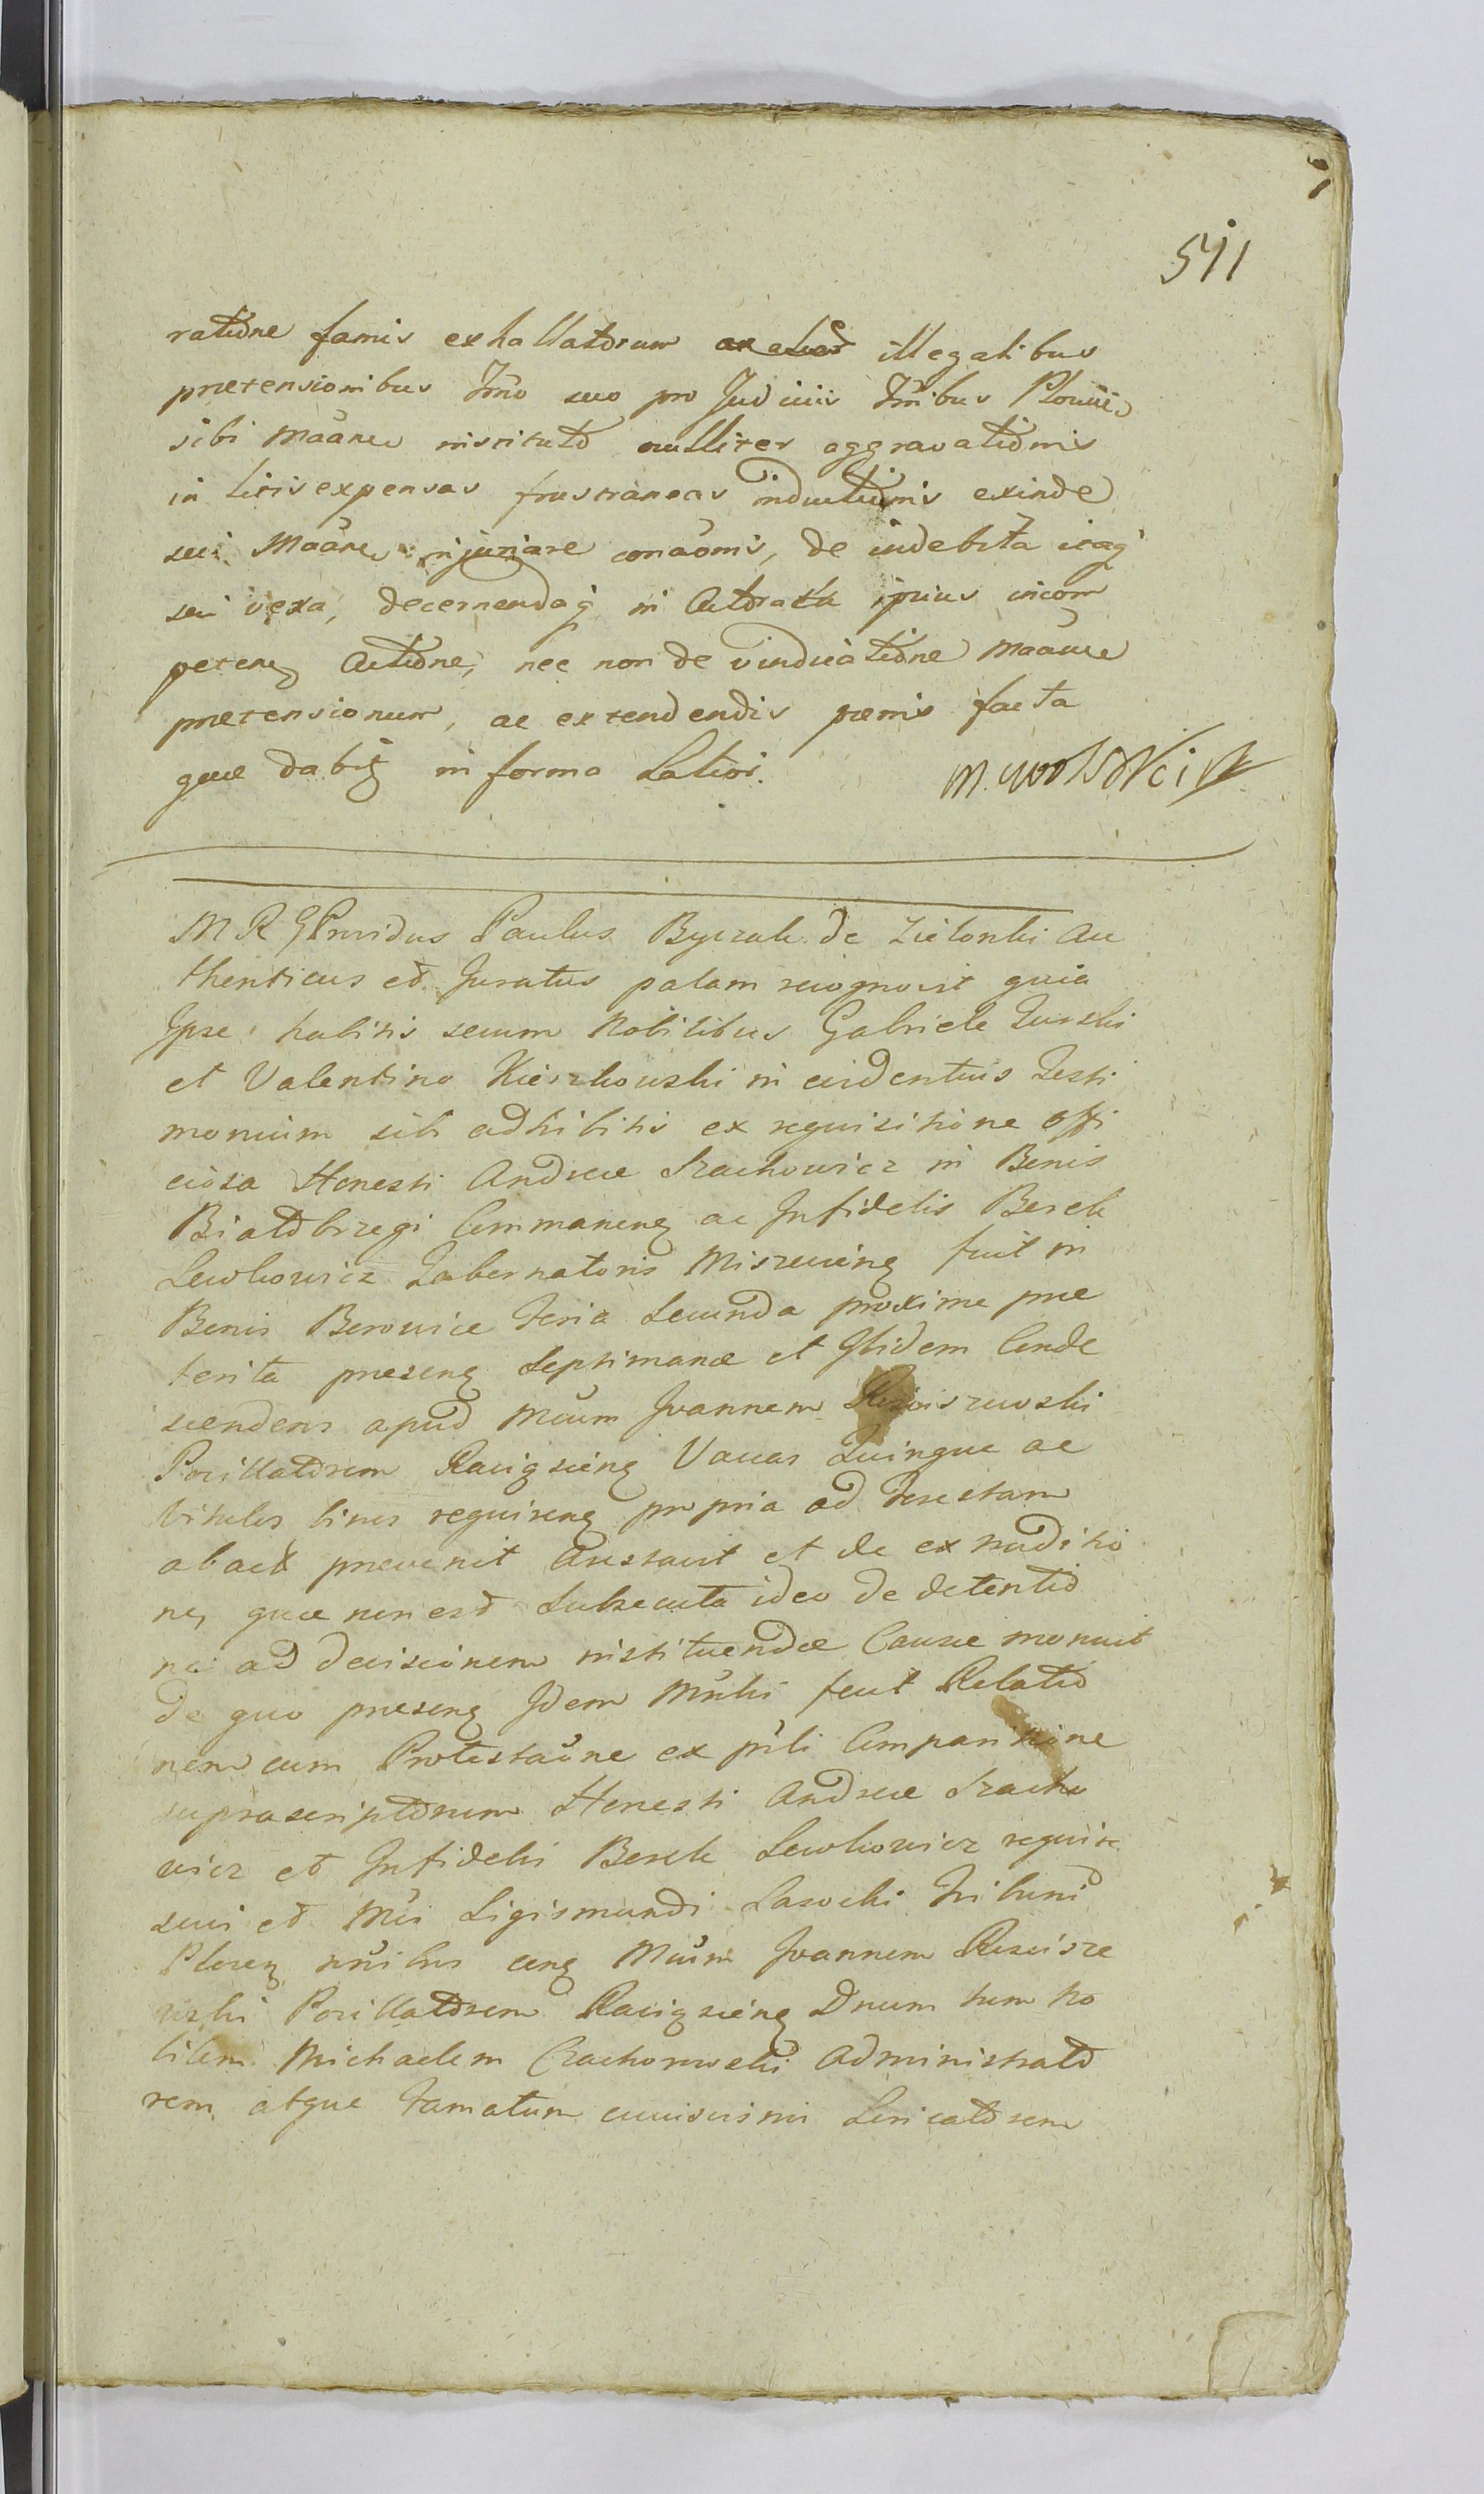 511
ratione famis exhallatorum illegalibus
praetensionibus Imo suo pro Judiciis Tribus Plocii
sibi Maane instituto nulliter aggravationis
in litis expensas frustraneas inductionis exinde
sui Maane injuriare conaonis, de indebita itaq
sui vexa, decernendaq in Actorata ipsius incom
peteng Actione, nec non de vindicatione Maanae
praetensionum, ac extendendis paenis facta
quae dabit in forma Latior.
M R G Providus Paulus Byczak de Zielonki Au
thenticus et Juratus palam recognovit quia
Ipse habitis secum Nobilibus Gabriele Turski
et Valentino Kierzkowski in evidentius Testi
monium sibi adhibitis ex requisitione offi
ciosa Honesti Andreae Szachowicz in Bonis
Białobrzegi Commaneng ac Infidelis Berek
Lewkowicz Tabernatoris Miszewieng fuit in
Bonis Borowice Feria Secunda proxime prae
terita praeseng Septimanae et Ibidem Conde
scendens apud Mcum Joannem Rościszewski
Pocillatorem Raciązieng Vacas Quinque ac
Vitulos binos requireng propria ad Forestam
abact praevenit Arestavit et de extraditio
ne, quae non est Subsecuta ideo de detentio
ne ad decisionem instituendae Causae monuit
de quo praeseng Idem Mnhi fecit Relatio
nem cum Protestaone ex pnli Comparitione
suprascriptorum Honesti Andreae Szacho
wicz et Infidelis Berek Lewkowicz require
sui et Mci Sigismundi Lasocki Tribuni
Ploceng nnibus ceng Mcum Joannem Roscisze
wski Pocillatorem Raciązieng Dnum tum No
bilem Michaelem Czachorowski Administrato
rem atque Famatum cuiusvismi Sericatorem